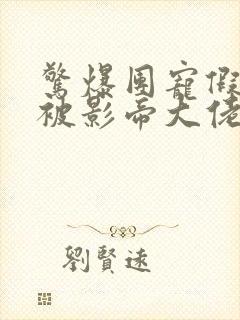 驚爆團寵假
被影帝大佬
劉賢遠